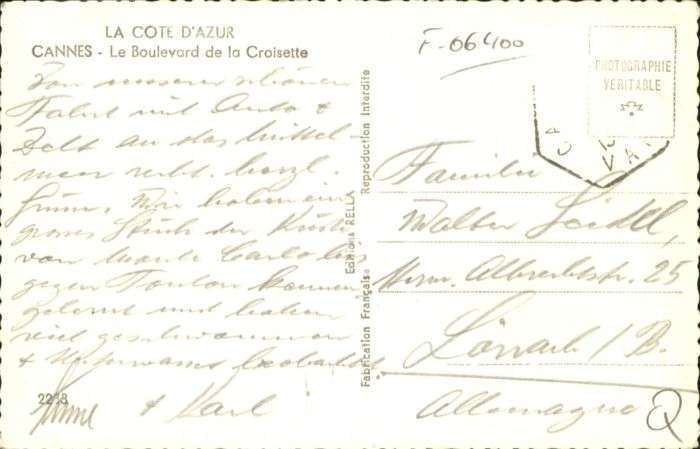 LA COTE D'AZUR
CANNES - Le Boulevard de la Croisette
F-06400
PHOTOGRAPHIE
VERITABLE
Von unserer schönen
Fahrt mit Auto &
Zelt an das Mittel-
meer recht herzl.
Wir haben ein
grosses Stück der Küste
von Monte Carlo bis
gegen Toulon kennen
gelernt und haben
viel geschwommen
&
2248
& Karl
Editions RELLA
Fabrication Française Reproduction Interdite
Familie
Walter
Albrechtstr. 25
Lörrach / B.
Allemagne
Q